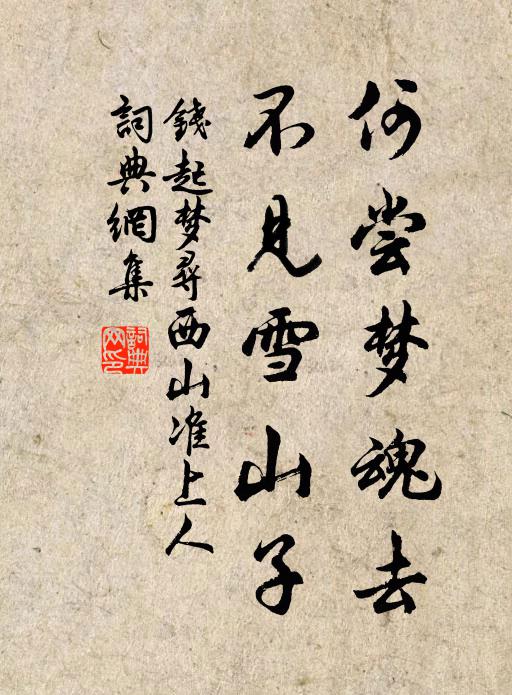 何尝梦魂去
不见雪山子
錢起梦尋西山准上人
詞典網集
詞典
网印